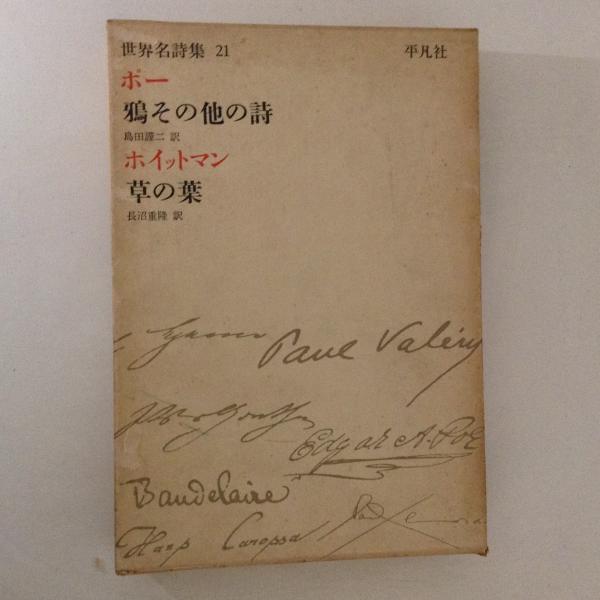 世界名詩集 21 平凡社
ポー
鴉その他の詩
島田謹二 訳
ホイットマン
草の葉
長沼重隆 訳
Paul Valéry
Edgar A. Poe
Baudelaire
Hans Carossa